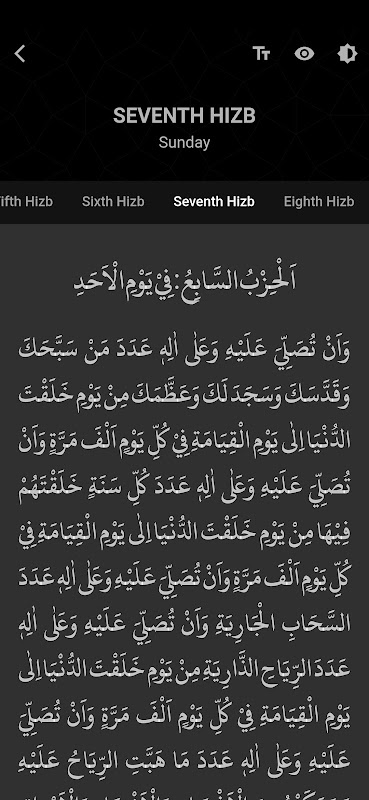 SEVENTH HIZB
Sunday
ifth Hizb Sixth Hizb Seventh Hizb Eighth Hizb
اَلْحِزْبُ السَّابِعُ: فِيْ يَوْمِ الْاَحَدِ
وَاَنْ تُصَلِّيَ عَلَيْهِ وَعَلٰى اٰلِهٖ عَدَدَ مَنْ سَبَّحَكَ
وَقَدَّسَكَ وَسَجَدَ لَكَ وَعَظَّمَكَ مِنْ يَوْمِ خَلَقْتَ
الدُّنْيَا اِلٰى يَوْمِ الْقِيَامَةِ فِيْ كُلِّ يَوْمٍ اَلْفَ مَرَّةٍ وَاَنْ
تُصَلِّيَ عَلَيْهِ وَعَلٰى اٰلِهٖ عَدَدَ كُلِّ سَنَةٍ خَلَقْتَهُمْ
فِيْهَا مِنْ يَوْمِ خَلَقْتَ الدُّنْيَا اِلٰى يَوْمِ الْقِيَامَةِ فِيْ
كُلِّ يَوْمٍ اَلْفَ مَرَّةٍ وَاَنْ تُصَلِّيَ عَلَيْهِ وَعَلٰى اٰلِهٖ عَدَدَ
السَّحَابِ الْجَارِيَةِ وَاَنْ تُصَلِّيَ عَلَيْهِ وَعَلٰى اٰلِهٖ
عَدَدَ الرِّيَاحِ الذَّارِيَةِ مِنْ يَوْمِ خَلَقْتَ الدُّنْيَا اِلٰى
يَوْمِ الْقِيَامَةِ فِيْ كُلِّ يَوْمٍ اَلْفَ مَرَّةٍ وَاَنْ تُصَلِّيَ
عَلَيْهِ وَعَلٰى اٰلِهٖ عَدَدَ مَا هَبَّتِ الرِّيَاحُ عَلَيْهِ